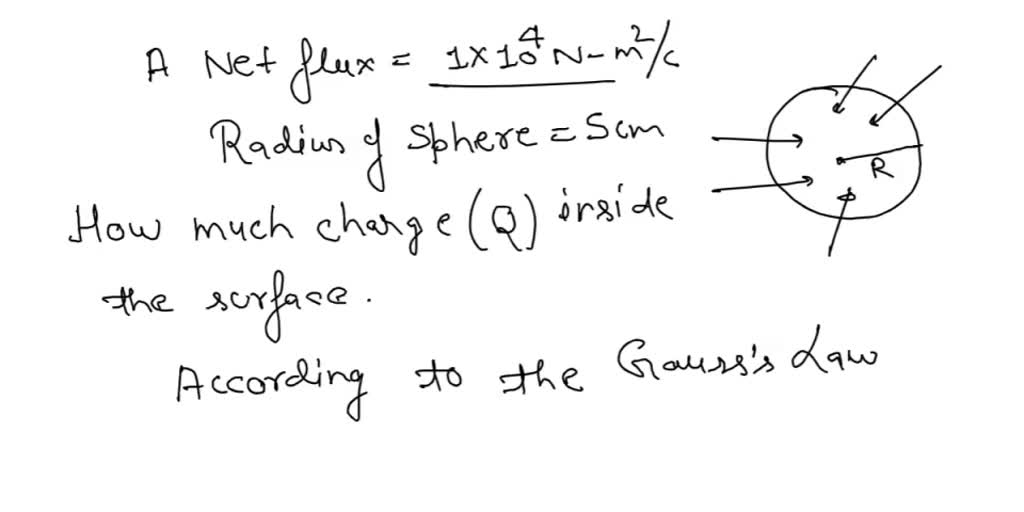 A Net flux = 1×10⁴ N-m²/c
Radius of Sphere = 5cm
R
How much charge (Q) inside
the surface.
According to the Gauss's Law